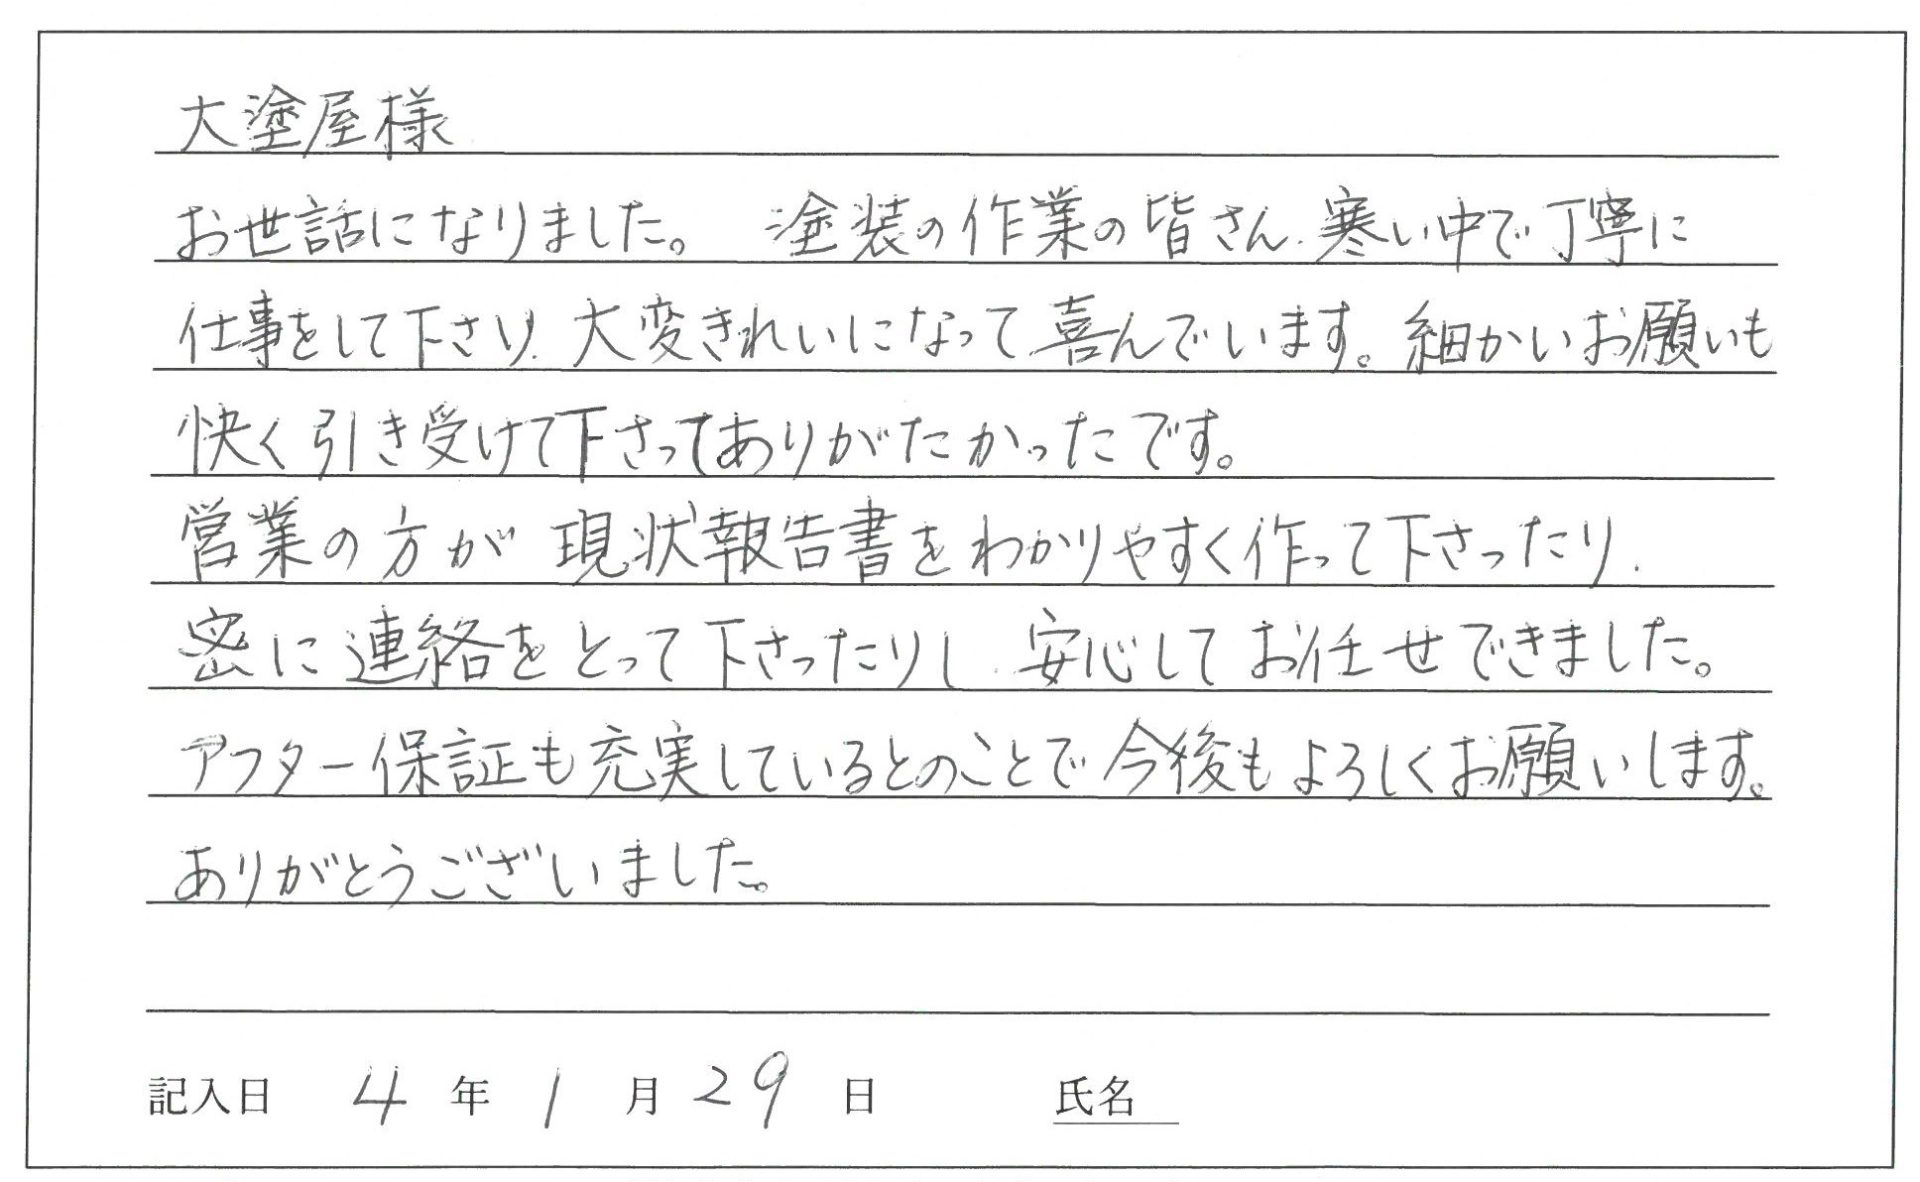 大塗屋様
お世話になりました。 塗装の作業の皆さん、寒い中で丁寧に
仕事をして下さり、大変きれいになって喜んでいます。細かいお願いも
快く引き受けて下さってありがたかったです。
営業の方が現状報告書をわかりやすく作って下さったり、
密に連絡をとって下さったりし、安心してお任せできました。
アフター保証も充実しているとのことで今後もよろしくお願いします。
ありがとうございました。
記入日 4 年 1 月 29 日 氏名